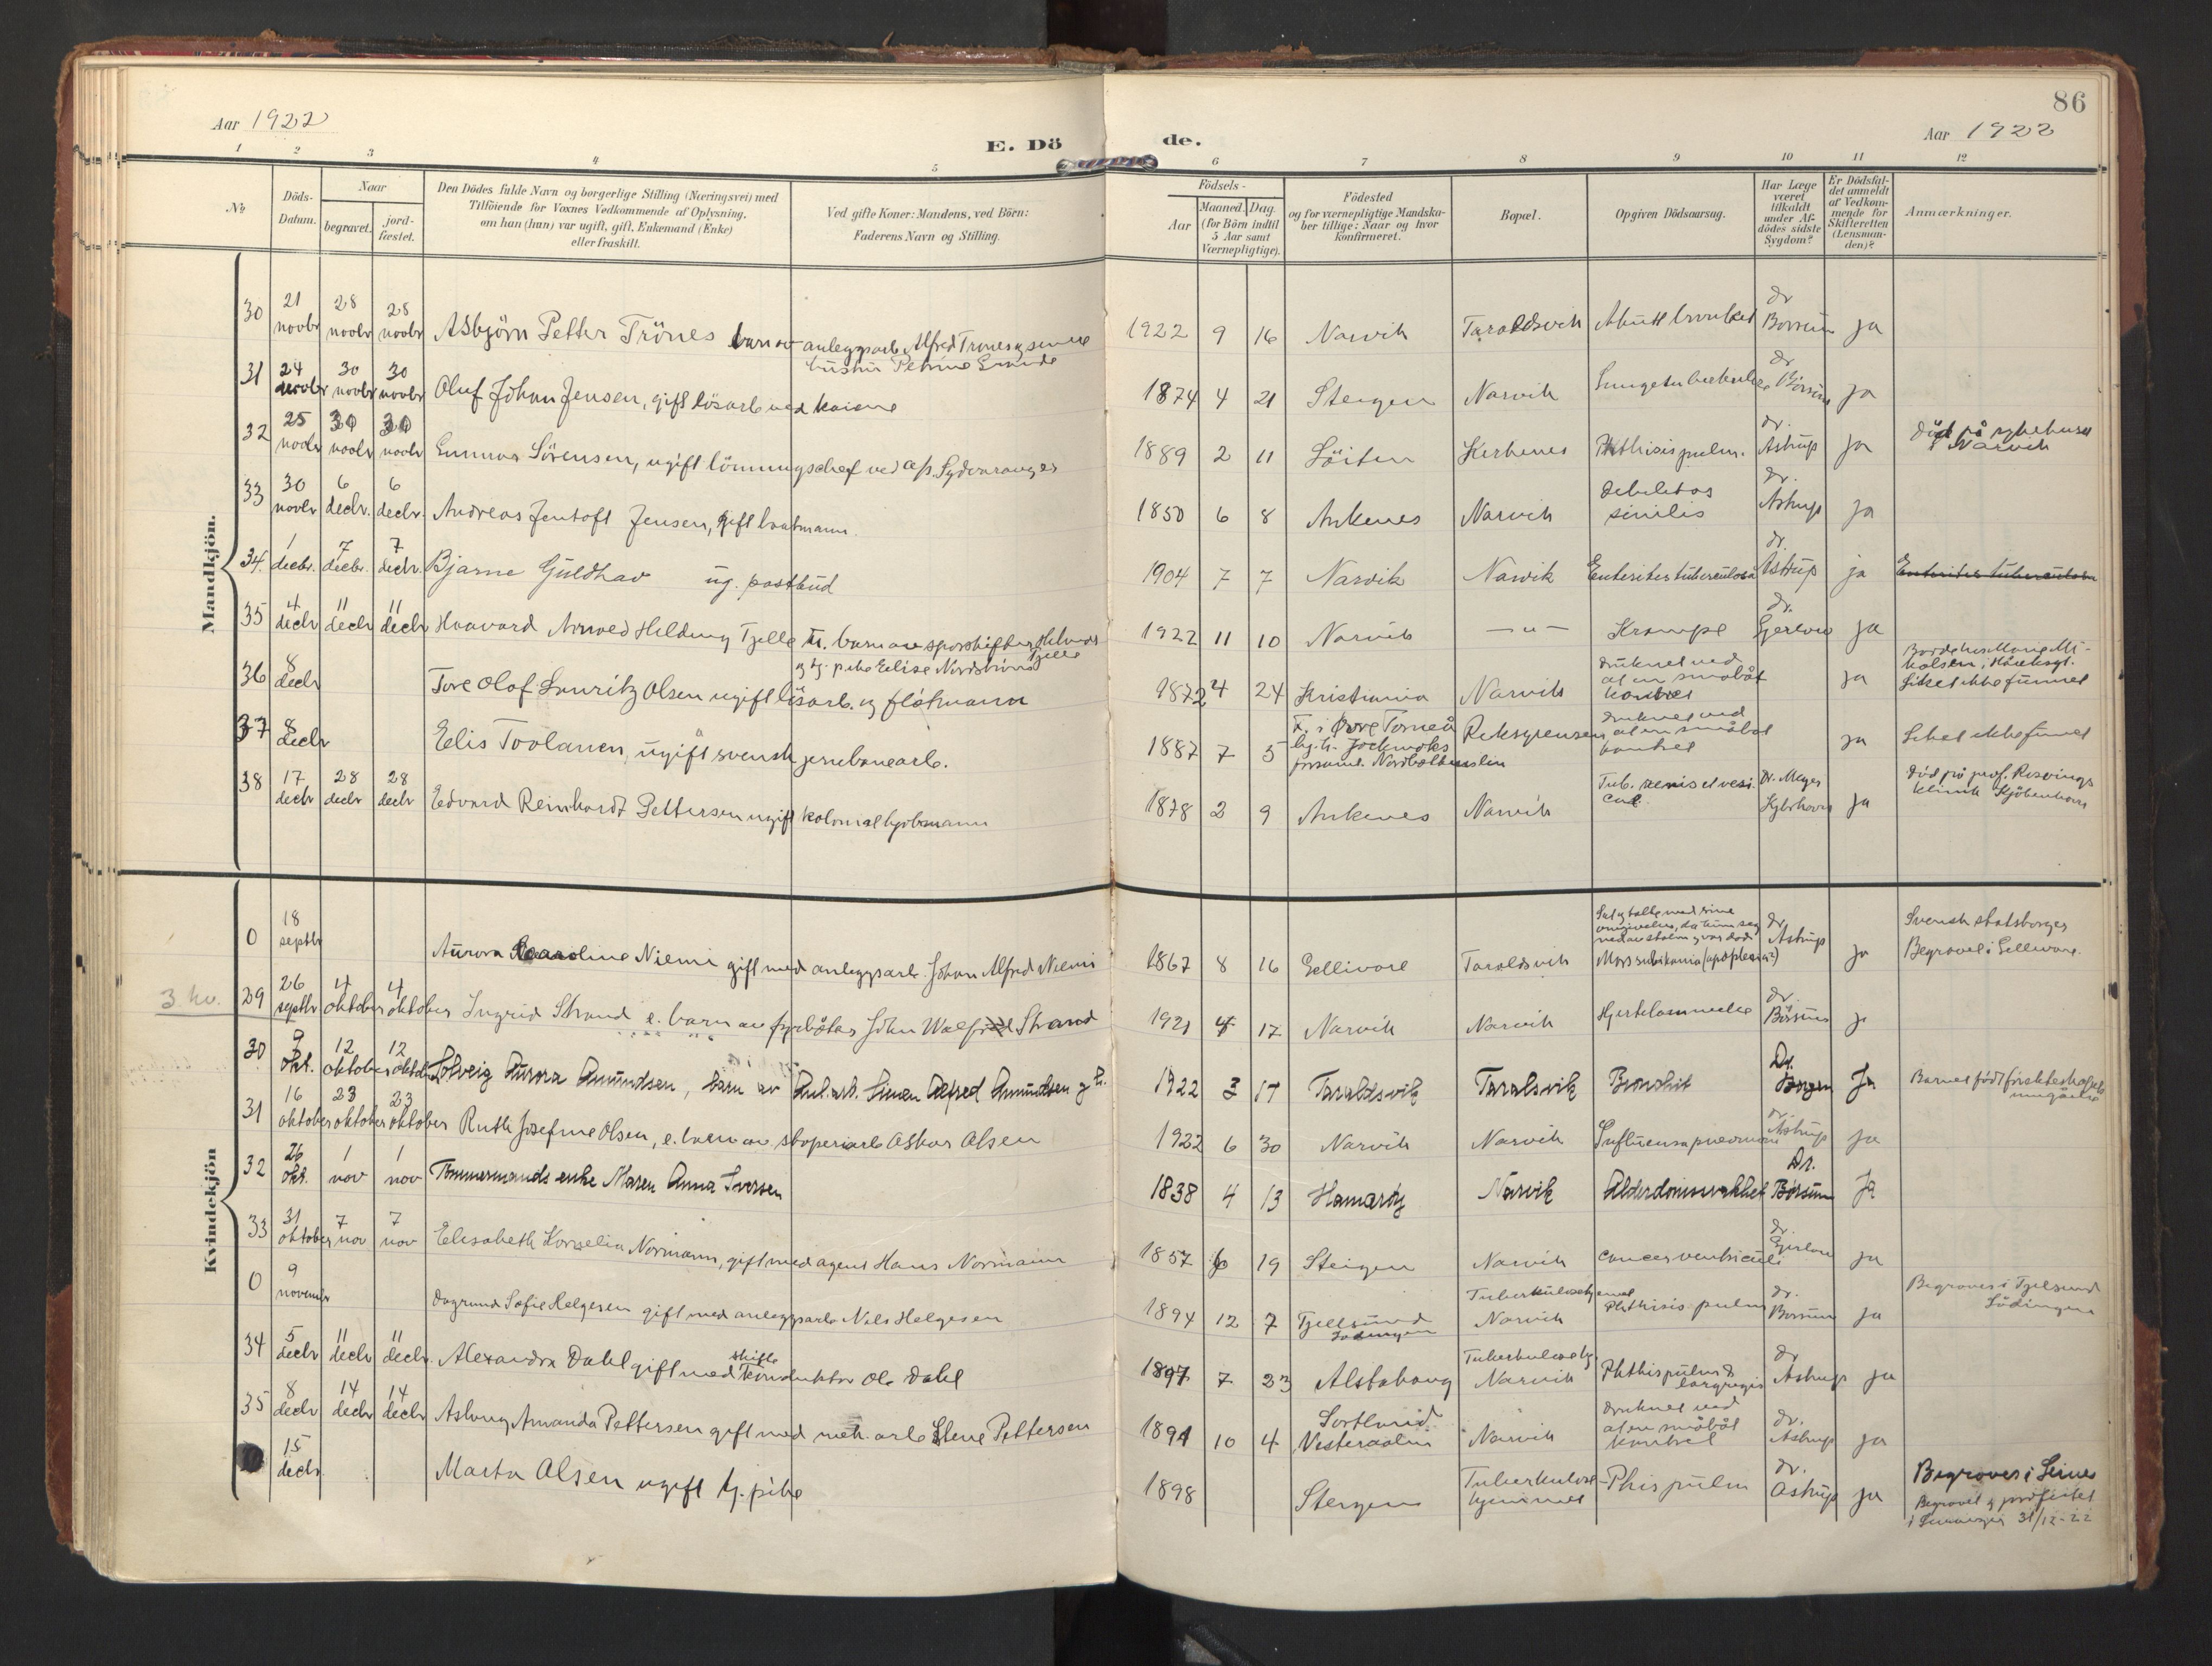 86
Aar 1922
Aar 1922
E. Dö
de.
1 2 3 4 5 6 7 8 9 10 11 12
No
Döds-
Datum.
Naar
begravet.
jord-
fæstet.
Den Dödes fulde Navn og borgerlige Stilling (Næringsvei) med
Tilföiende for Voxnes Vedkommende af Oplysning.
om han (hun) var ugift, gift, Enkemand (Enke)
eller fraskilt.
Ved gifte Koner: Mandens, ved Börn:
Faderens Navn og Stilling.
Födsels-
Aar
Maaned. Dag.
(for Börn indtil
5 Aar samt
Værnepligtige).
Födested
og for værnepligtige Mandska-
ber tillige: Naar og hvor
konfirmeret.
Bopæl.
Opgiven Dödsaarsag.
Har Læge
været
tilkaldt
under Af-
dödes sidste
Sygdom?
Er Dödsfal-
det anmeldt
af Vedkom-
mende for
Skifteretten
(Lensman-
den)?
Anmærkninger.
Mandkjön.
30 21 novbr 28 novbr 28 novbr Asbjörn Petter Trönes barn av anleggsarb. Alfred Trones og
hustru Petrine
1922 9 16 Narvik Taraldsvik Akutt bronkit dr Borsum ja
31 24 novbr 30 novbr 30 novbr Oluf Johan Jensen, gift lösarb ved kaiene
1874 4 21 Steigen Narvik Lungetuberkulose dr Börsum ja
32 25 novbr 30 novbr 30 novbr Gunnar Sörensen, ugift lönningschef ved a/s Sydvaranger
1889 2 11 Löiten Kirkenes Phthisis pulm. dr. Astrup ja Död på sykehuset
i Narvik
33 30 novbr 6 decbr. 6 decbr. Andreas Jentoft Jensen, gift baatmann.
1850 6 8 Ankenes Narvik debilitas
sinilis dr. Astrup ja
34. 1 decbr. 7 decbr. 7 decbr. Bjarne Guldhav ug. postbud
1904 7 7 Narvik Narvik Enterites tuberculosa dr. Astrup ja Enterites tuberculosa
35 4 decbr 11 decbr 11 decbr Haavard Arnved Hilding Tjelle u. barn av sporskifter
Tjelle og tj. pike Eelise Nordström
1922 11 10 Narvik —"— Krampe dr. Gjerlow ja
36 8 decbr Tore Olaf Lauritz Olsen ugift lösarb. og flötmann
1872 4 24 Kristiania Narvik druknet ved
at en småbåt
kantret ja Liket ikke funnet
37 8 decbr Eelis Toolanen, ugift svensk jernbanearb.
1887 7 5 F. i Övre Torneå
Jockmoks
församl. Norrbottenslän Riksgrensen druknet ved
at en småbåt
kantret ja Liket ikke funnet
38 17 decbr 28 decbr 28 decbr Edvard Reinhardt Pettersen ugift kolonialkjöbmann
1878 2 9 Ankenes Narvik Tub. renis et vesi.
cae. Dr. Meyer
Kjbhavn ja Död på prof. Rovsings
klinik Kjöbenhavn
Kvindekjön
0 18 septbr Aurora Karoline Niemi gift med anleggsarb. Johan Alfred Niemi
1867 8 16 Gellivare Taraldsvik Sat og talte med sine
omgivelser, da hun seg
ned av stolen og var död
Mors subitanea (apoplexia?) dr Astrup ja Svensk statsborger
Begravet i Gellivare.
3 kv.
29 26 septbr 4 oktober 4 oktober Ingrid Strand e. barn av fyrböter John Walfred Strand
1921 4 17 Narvik Narvik Hjertelammelse dr. Börsum ja
30. 9 okt. 12 oktober 12 oktober Solveig Aurora Amundsen, barn av Anl.arb. Simen Alfred Amundsen og h.
1922 3 17 Taraldsvik Taralsvik Bronchit Dr. Borgen Ja Barnet födt för ekteskapets
inngåelse
31 16 oktober 23 oktober 23 oktober Ruth Josefine Olsen, e. barn av stoperiarb Oskar Olsen
1922 6 30 Narvik Narvik Influensapneumoni dr. Astrup ja
32 26 okt. 1 nov 1 nov Tömmermands enke Maren Anna Iversen
1838 4 13 Hamaröy Narvik Alderdomssvakhet Dr. Börsum Ja
33 31 oktober 7 nov 7 nov Elisabeth Kornelia Normann, gift med agent Hans Normann
1857 6 19 Steigen Narvik cancer ventriculi dr. Gjerlow ja
0 9 november Dagrund Sofie Helgesen gift med anleggsarb Nils Helgesen
1894 12 7 Tjellsund
Lödingen Tuberkulosehjemmet
Narvik Phthisis pulm dr. Borsum ja Begraves i Tjelsund
Lödingen
34 5 decbr 11 decbr 11 decbr. Alexandra Dahl gift med skifte
konduktör Ole Dahl
1897 7 23 Alstahaug Tuberkulosehj.
Narvik Phthis pulm &
laryngis dr Astrup ja
35 8 decbr 14 decbr 14 decbr Aslaug Amanda Pettersen gift med mek. arb Stene Pettersen
1891 10 4 Sortland
Vesteraalen Narvik druknet ved
at en småbåt
kantret dr. Astrup ja
15 decbr. Marta Olsen ugift tj. pike
1898 Steigen Tuberkulose-
hjemmet Phis pulm dr. Astrup ja Begraves i Leines
Begravet og jordfestet
i 31/12-22